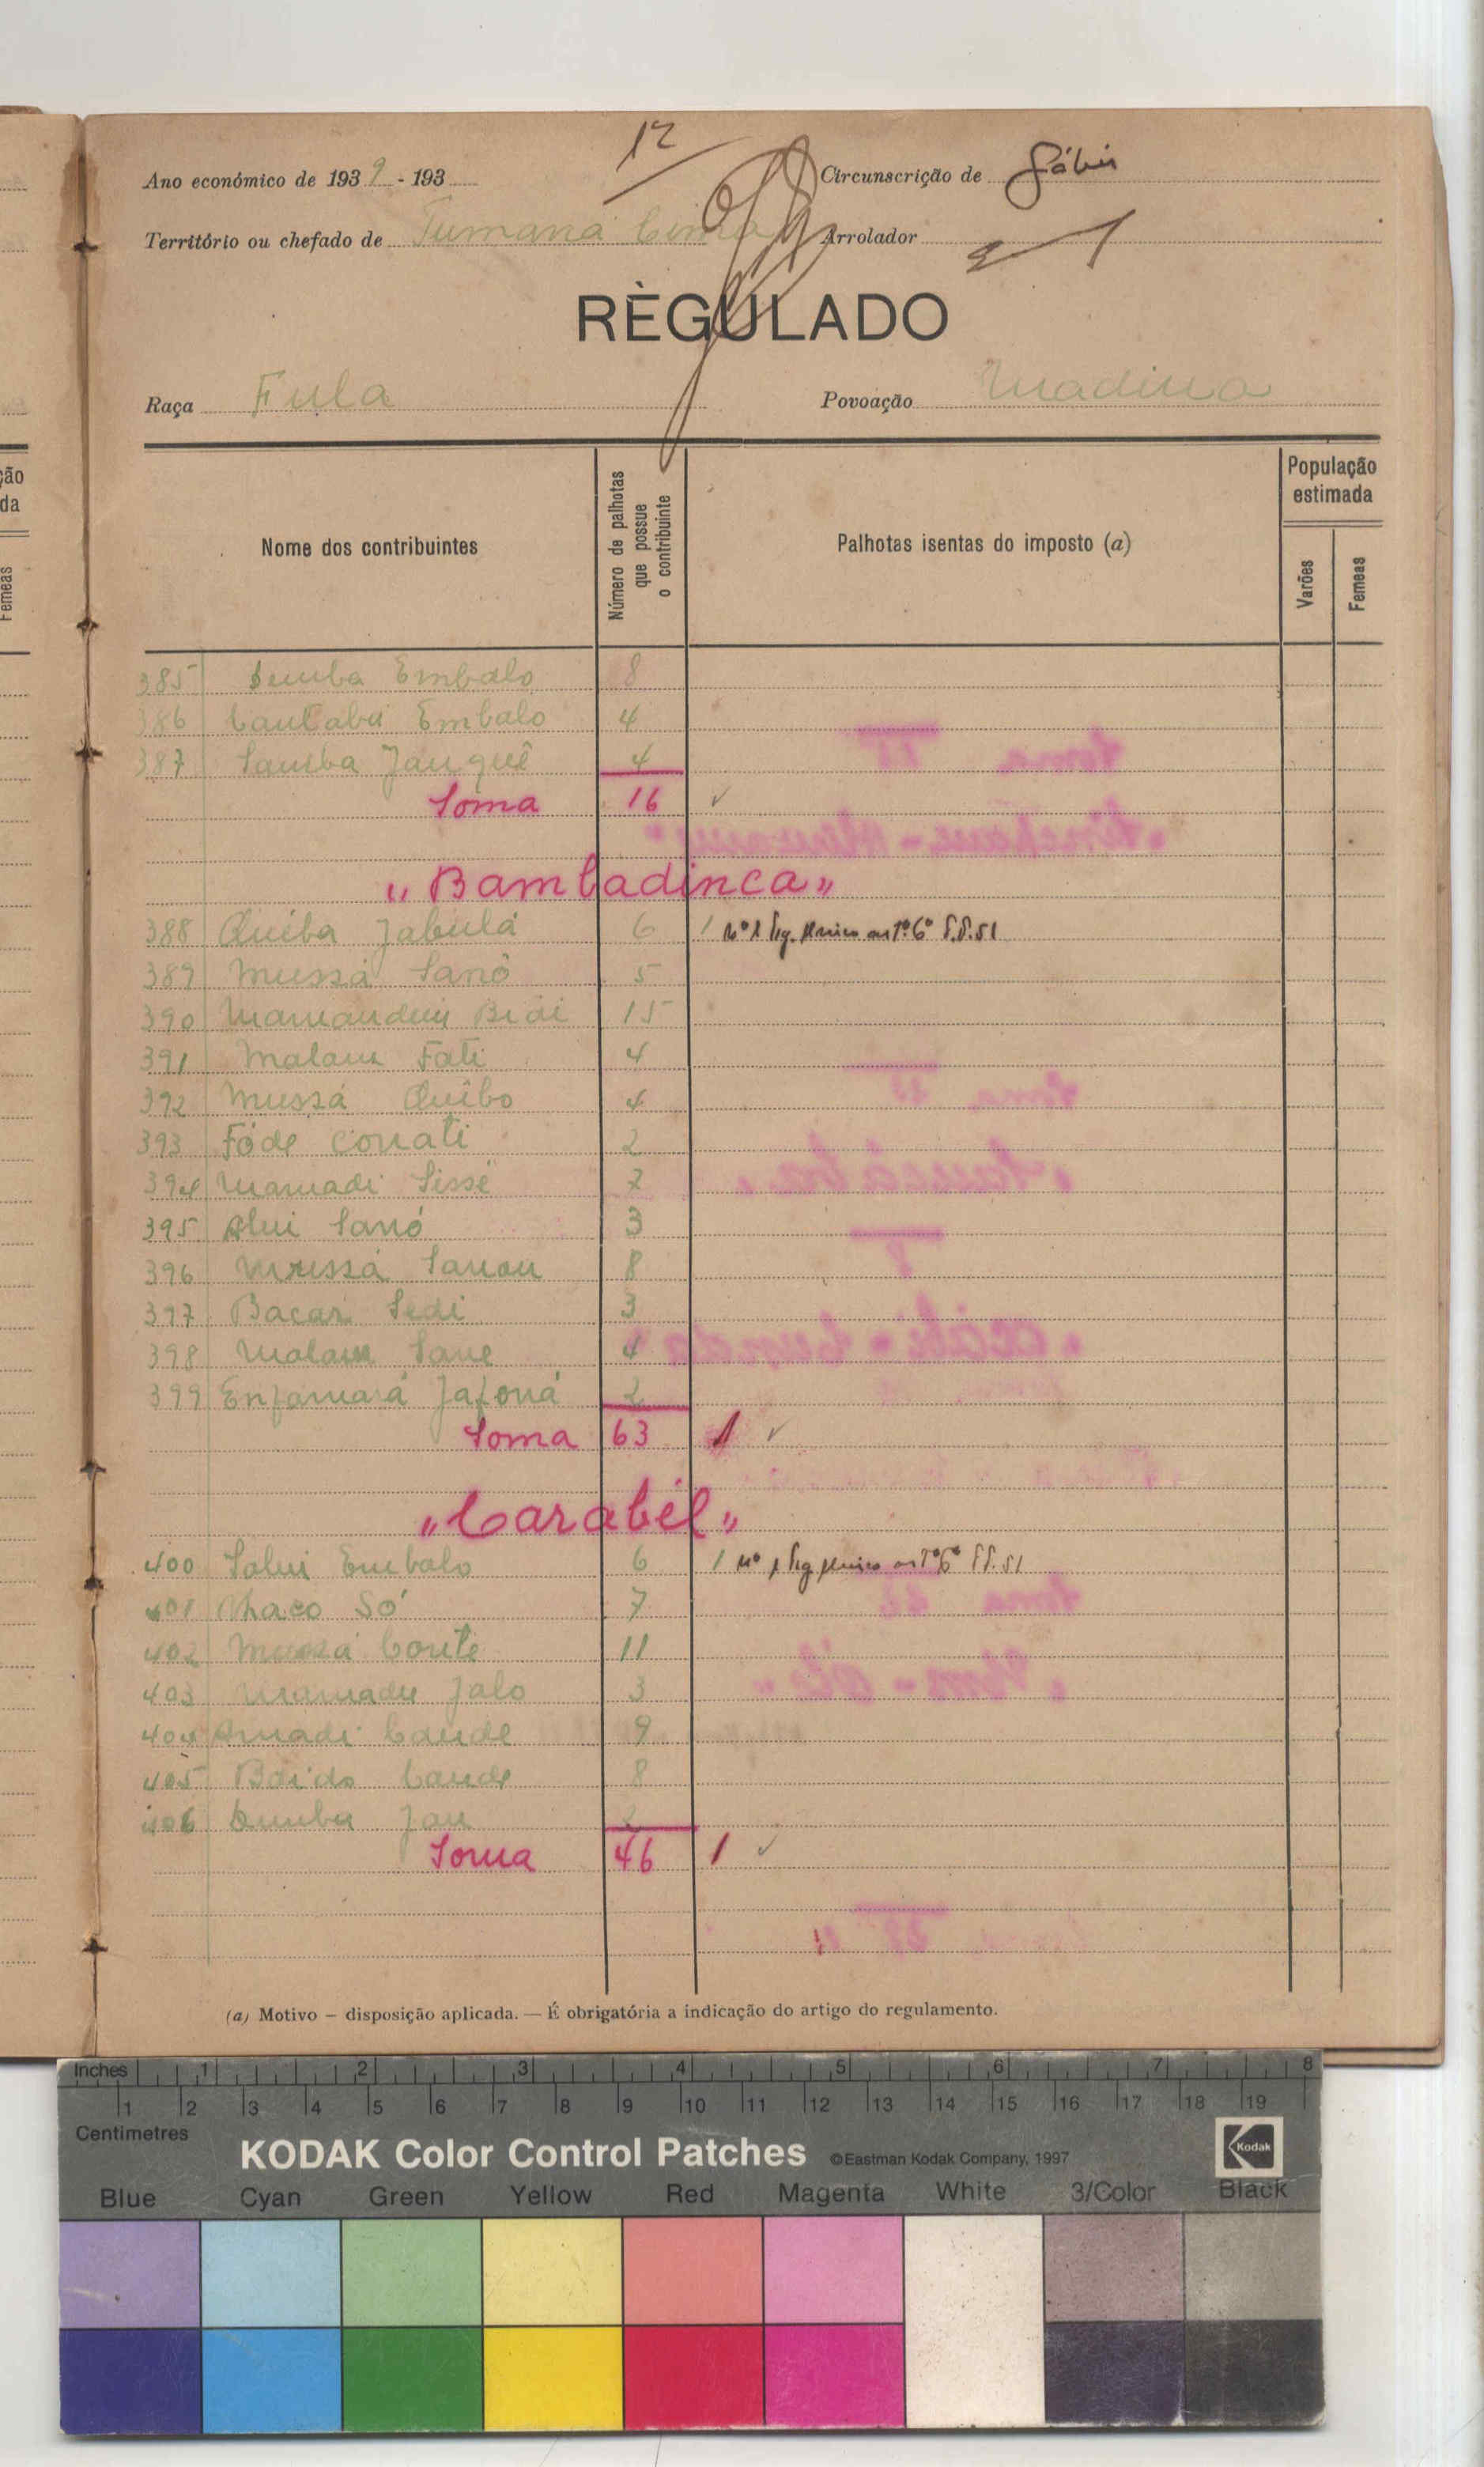 12
Ano económico de 1939 - 193
Circunscrição de Gábú
Território ou chefado de Tumana Cima
Arrolador
RÈGULADO
Raça Fula
Povoação Madina
Nome dos contribuintes
Número de palhotas que possue o contribuinte
Palhotas isentas do imposto (a)
População estimada
Varões
Femeas
385 Semba Embalo 8
386 Embalo 4
387 Samba Janquê 4
Soma 16 ✓
"Bambadinca"
388 Quiba Jabulá 6 1 nº 1
389 Mussá Sanó 5
390 Mamandim Biai 15
391 Malam Fati 4
392 Mussá Quibo 4
393 Fóde Conati 2
394 Mamadi Sissé 7
395 Alui Sanó 3
396 Mussá Sanou 8
397 Bacar Sedi 3
398 Malam Sane 4
399 Enfamará Jafoná 2
Soma 63 1 ✓
"Carabél"
400 Salui Embalo 6 1 nº 1
401 Só 7
402 Mussá Conte 11
403 Mamadu Jalo 3
404 Amadi Cande 9
405 Boido Cande 8
406 Demba Jau 2
Soma 46 1 ✓
(a) Motivo — disposição aplicada. — É obrigatória a indicação do artigo do regulamento.
ção
da
Femeas
Inches 1 2 3 4 5 6 7 8
1 2 3 4 5 6 7 8 9 10 11 12 13 14 15 16 17 18 19
Centimetres
KODAK Color Control Patches ©Eastman Kodak Company, 1997 Kodak
Blue Cyan Green Yellow Red Magenta White 3/Color Black